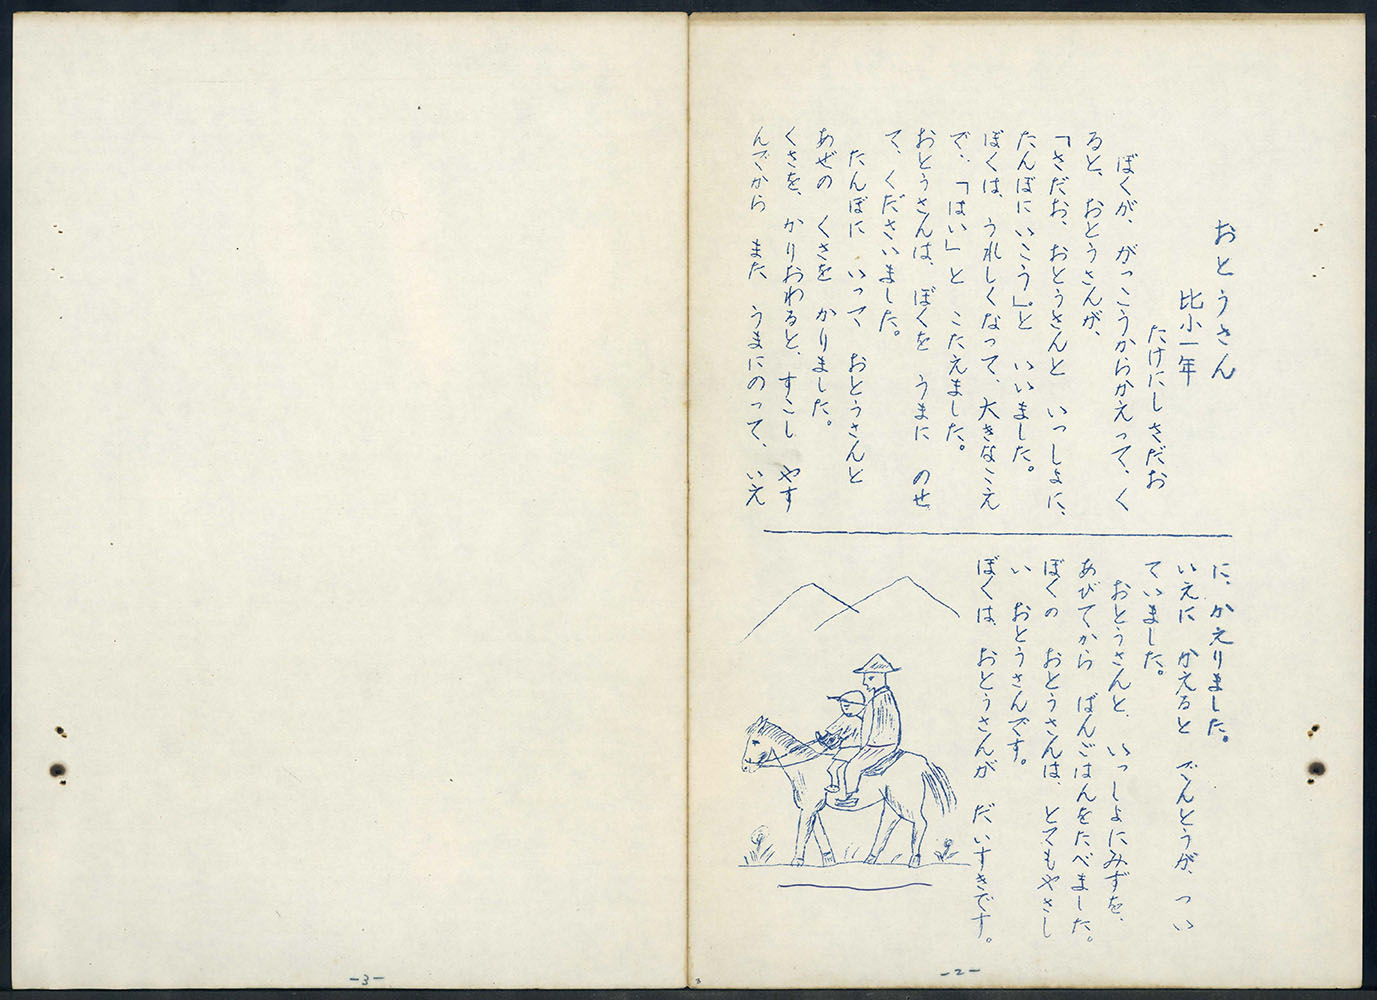 おとうさん
比小一年
たけにしさだお
ぼくが、がっこうからかえって、く
ると、おとうさんが、
「さだお、おとうさんと いっしよに、
たんぼにいこう」。と いいました。
ぼくは、うれしくなって、大きなこえ
で、「はい」と こたえました。
おとうさんは、ぼくを うまに のせ
て、くださいました。
たんぼに いって おとうさんと
あぜの くさを かりました。
くさを、かりおわると、すこし やす
んでから また うまにのって、いえ
に、かえりました。
いえに かえると でんとうが、つい
ていました。
おとうさんと、いっしよにみずを、
あびてから ばんごはんをたべました。
ぼくの おとうさんは、とてもやさし
い おとうさんです。
ぼくは、おとうさんが だいすきです。
-2-
-3-